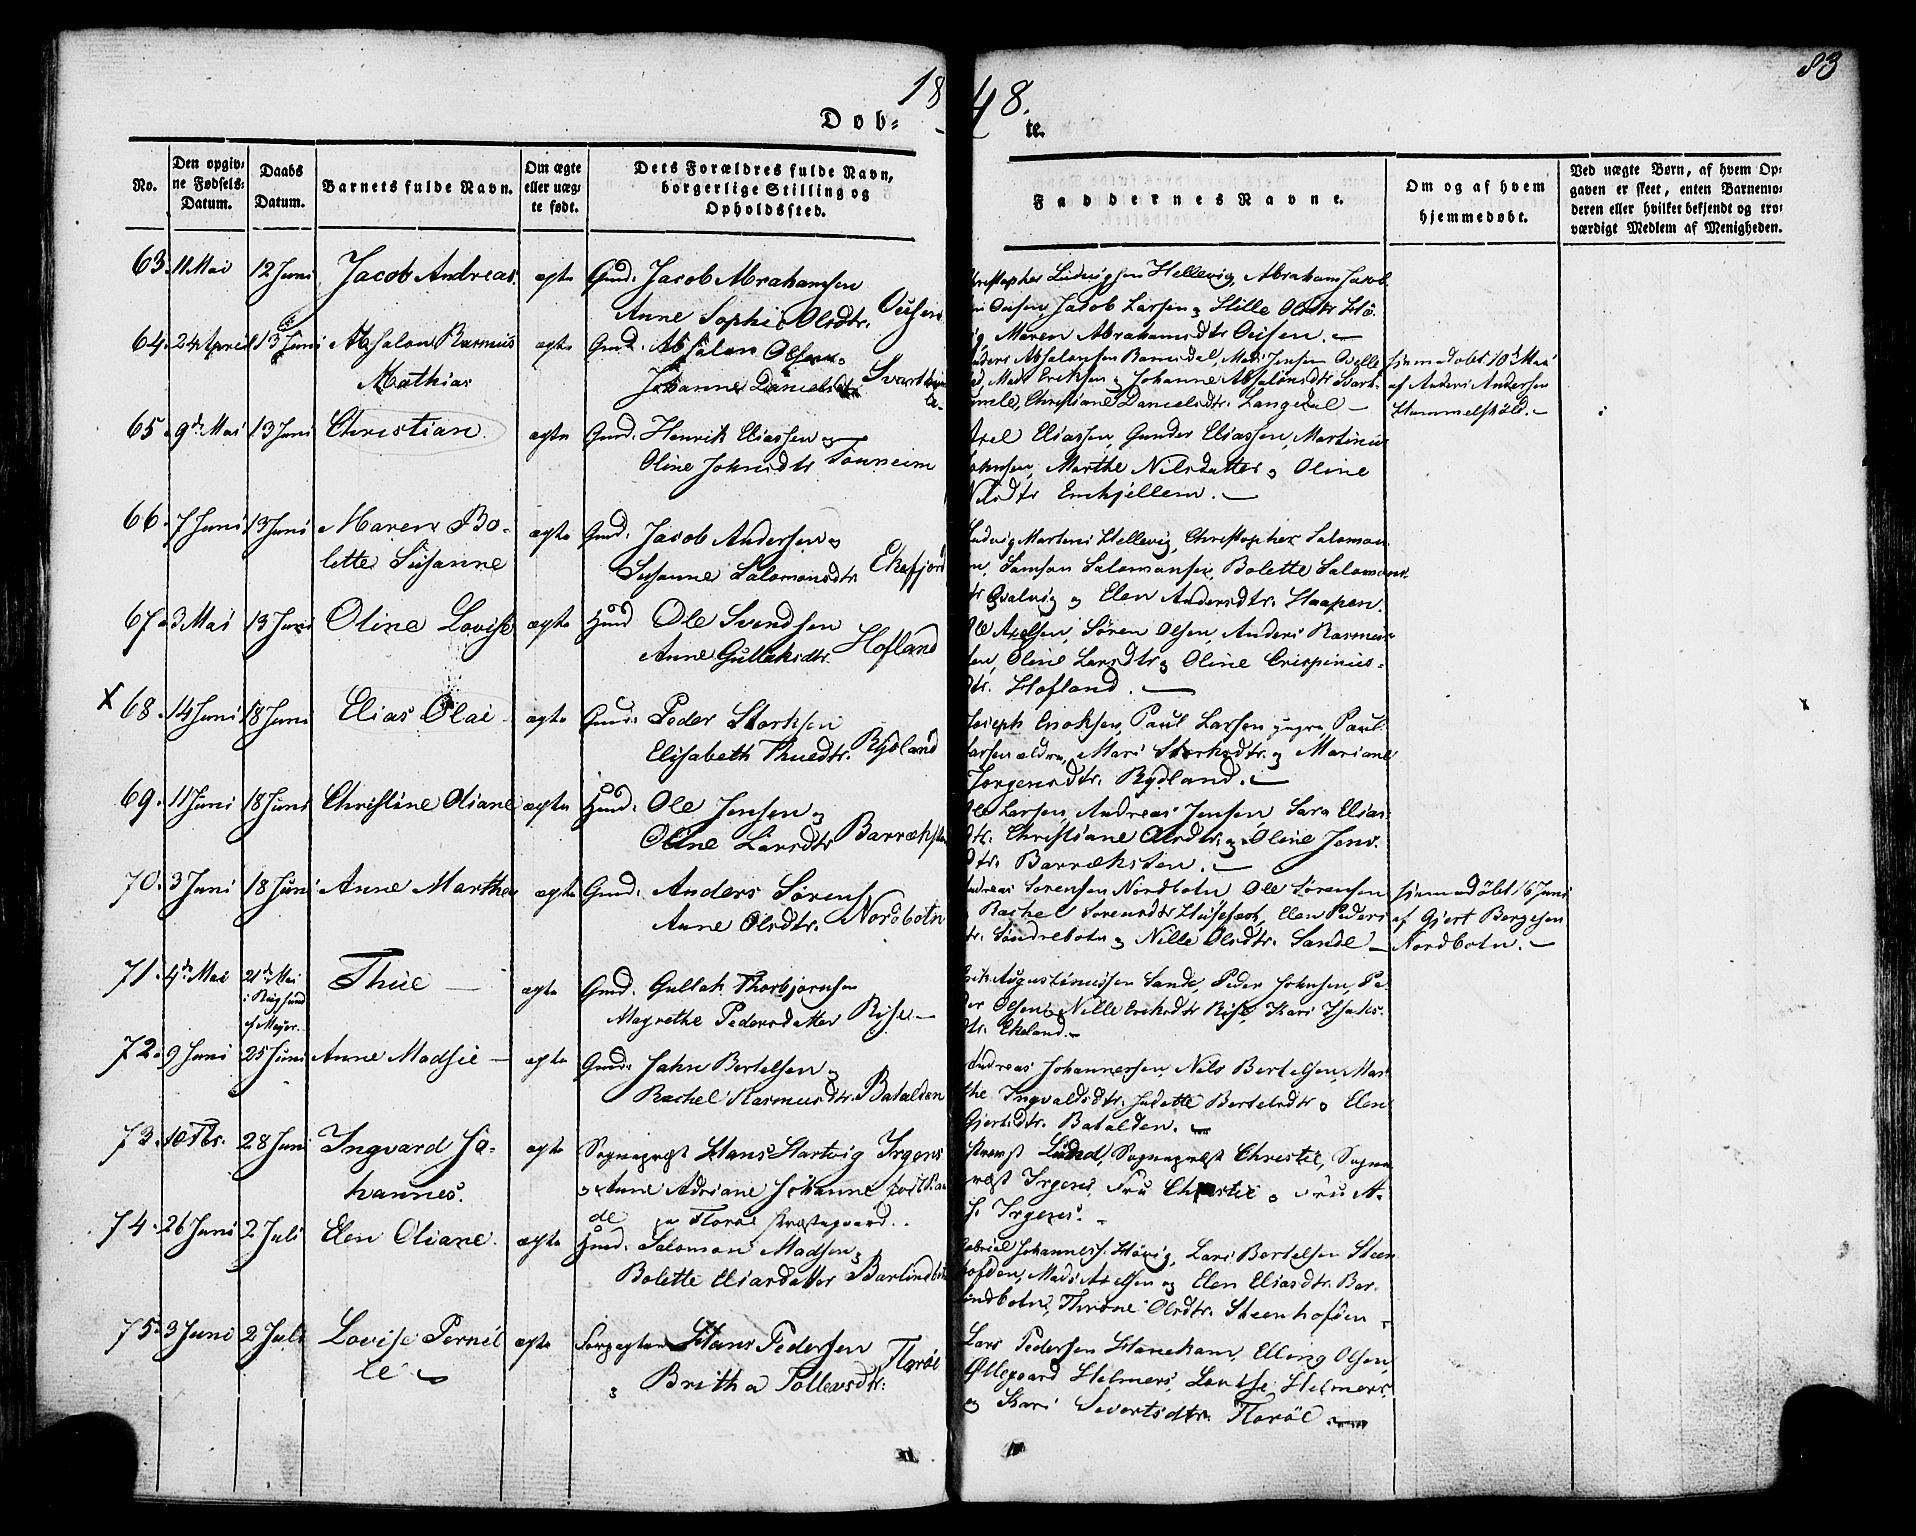 1848.
83
Døb-te.
No.
Den opgiv-
ne Fødsels-
Datum.
Daabs
Datum.
Barnets fulde Navn.
Om ægte
eller uæg-
te født.
Dets Forældres fulde Navn,
borgerlige Stilling og
Opholdssted.
Faddernes Navne.
Om og af hvem
hjemmedøbt.
Ved uægte Børn, af hvem Op-
gaven er skeet, enten Barnemo-
deren eller hvilket bekjendt og tro-
værdigt Medlem af Menigheden.
63. 11 Mai 12 Juni Jacob Andreas ægte Gmd. Jacob Abrahamsen
Anne Sophie Olsdtr. Ousen
Ludvigsen Hellevig, Abraham Jacob
Ousen, Jacob Larsen og Hille Olsdtr Hø
Maren Abrahamsdtr Ousen.
64. 24 April 13 Juni Absalon Rasmus ægte Gmd. Absalon Olsen
Mathias
Johanne Danielsdtr
Absalonsen Ramsdal, Mads Jensen
Mads Eriksen og Johanne Absalonsdtr Svart-
Christiane Danielsdtr. Langedal
hjemmedøbt 10de Mai
af Anders Andersen
65. 9de Mai 13 Juni Christian. ægte Gmd. Henrik Eliassen og
Oline Johnsdtr
Axel Eliassen, Gunder Eliassen, Martinus
Johnsen, Marthe Nilsdatter og Oline
Nilsdtr
66. 7 Juni 13 Juni Maren Bo-
lette Susanne
ægte Gmd. Jacob Andersen og
Susanne Salomonsdtr Ekefjord
Ludvig Martens Hellevig, Christopher Salomon
Samson Salomonsen, Bolette Salomons
og Elen Andersdtr. Haapen.
67. 3 Mai 13 Juni Oline Lovise ægte Huusmd Ole Svendsen
Anne Gullaksdtr. Hofland
Ole Axelsen, Søren Olsen, Anders Rasmus
sen, Oline Larsdtr og Oline Crispinus-
dtr. Hofland.
x 68. 14 Juni 18 Juni Elias Olai ægte Gmd. Peder Storksen
Elisabeth Thuedtr. Rydland
Joseph Enoksen, Paul Larsen yngre, Paul
Larsen ældre, Mari Storksdtr. og Mariane
Jørgensdtr. Rydland.
69. 11 Juni 18 Juni Christine Oliane ægte Huusmd. Ole Jensen og
Oline Larsdtr Barrækst
Ole Larsen, Andreas Jensen, Sara Elias
dtr. Christiane Olsdtr. og Oline Jens
dtr. Barræksten.
70. 3 Juni 18 Juni Anne Marthea ægte Gmd. Anders Sørens
Anne Olsdtr. Nordbotn
Andreas Sørensen Nordbotn, Ole Sørensen
Rachel Sorensdtr Husefest, Elen Peders
dtr. Søndrebotn og Nille Olsdtr. Sande
hjemmedøbt 16 Juni
af Gjert Bergesen
Nordbotn.
71. 4de Mai 21de Mai
i Rugsund
af Meyer.
Thue ægte Gmd. Gullak Thorbjørnsen
Magrethe Pedersdatter Rise
Erik Augustinussen Sande, Peder Johnsen, Pe-
der Olsen, Nille Eriksdtr Rise, Kari Isaks-
dtr. Ekeland.
72. 9 Juni 25 Juni Anne Madsie ægte Gmd. Jahn Bertelsen og
Rachel Rasmusdtr. Batalden
Andreas Johannessen, Nils Bertelsen, Mar
the Ingvaldsdtr. Judette Bertelsdtr og Elen
Gjertsdtr. Batalden.
73. 10 Fbr. 28 Juni Ingvard Jo-
hannes.
ægte Sognepræst Hans Hartvig Irgens
og Anne Adriane Johanne
paa Florøe Præstegaard.
Lund, Sognepræst Christie, Sogne
præst Irgens, Fru Christie og Fru A.
Irgens.
74. 26 Juni 2 Juli Elen Oliane. ægte Huusmd. Salomon Madsen og
Bolette Eliasdatter Barlindb
Gabriel Johanness. Høvig, Lars Bertelsen Steen
hofden, Mads Axelsen og Elen Eliasdtr. Bar-
lindbotn, Throne Olsdtr. Steenhofden
75. 3 Juni 2 Juli Lovise Pernil
le
ægte Forpagter Hans Pedersen
og Britha Tollevsdtr. Florøe
Lars Pedersen Hanekam, Elling Olsen,
Øllegaard Helmers, Lovise Helmers
og Kari Sivertsdtr. Florøe